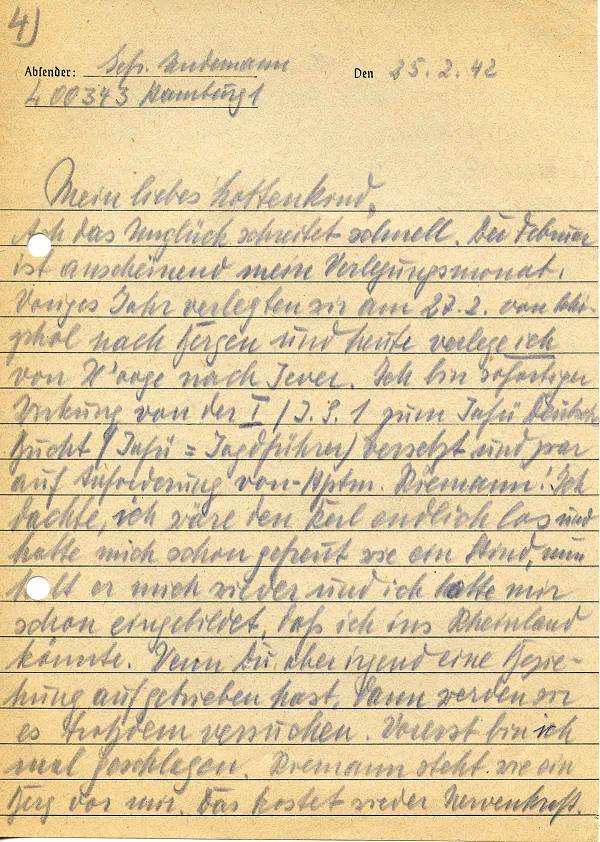 4)
Absender: Gefr. Lindemann Den 25.2.42
L 00343 Hamburg 1
Mein liebes Lottenkind,
Ach das Unglück schreitet schnell. Der Februar
ist anscheinend mein Verlegungsmonat.
Voriges Jahr verlegten wir am 27.2. von Schi-
phol nach Bergen und heute verlege ich
von W'ooge nach Jever. Ich bin sofortiger
Wirkung von der I/J.G.1 zum Jafü Deutsche
Bucht (Jafü = Jagdführer) versetzt und zwar
auf Anforderung von Hptm. Riemann! Ich
dachte, ich wäre den Kerl endlich los und
hatte mich schon gefreut wie ein Kind, nun
holt er mich wieder und ich hatte mir
schon eingebildet, daß ich ins Rheinland
könnte. Wenn Du aber irgend eine Bezie-
hung aufgetrieben hast, dann werden wir
es trotzdem versuchen. Vorerst bin ich
mal geschlagen. Riemann steht wie ein
Berg vor mir. Das kostet wieder Nervenkraft.